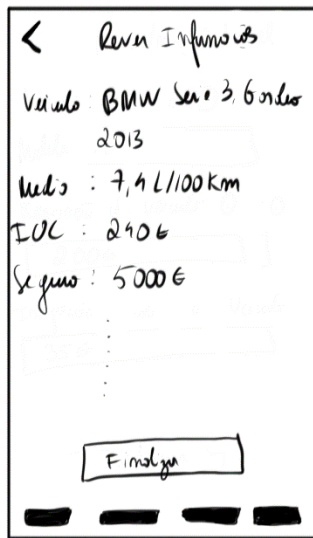 < Rever Informações
Veículo: BMW Serie 3, Gasóleo
2013
Médio : 7,4 L/100 Km
IUC : 240 €
Seguro : 5000 €
Finalizar